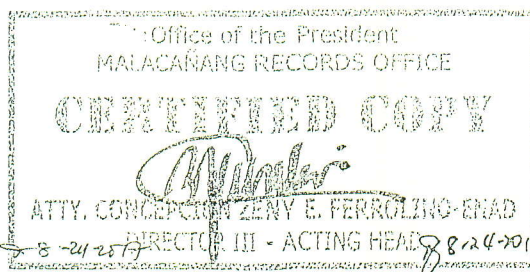 Office of the President
MALACAÑANG RECORDS OFFICE
CERTIFIED COPY
ATTY. CONCEPCION ZENY E. FERROLINO-ENAD
DIRECTOR III - ACTING HEAD
8-24-2017 8-24-201